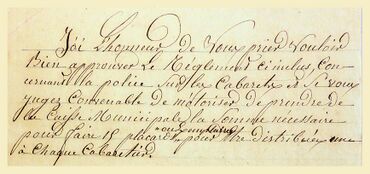 J'ai L'honneur de Vous prier Vouloir
Bien approuver Le Réglement ci inclus, Con-
cernant la police sur les Cabarets et Si vous
jugez Convenable de m'otoriser de prendre de
la Caisse Municipale la Somme necessaire
pour faire 15 placards pour être distribuées une
à Chaque Cabaretier.